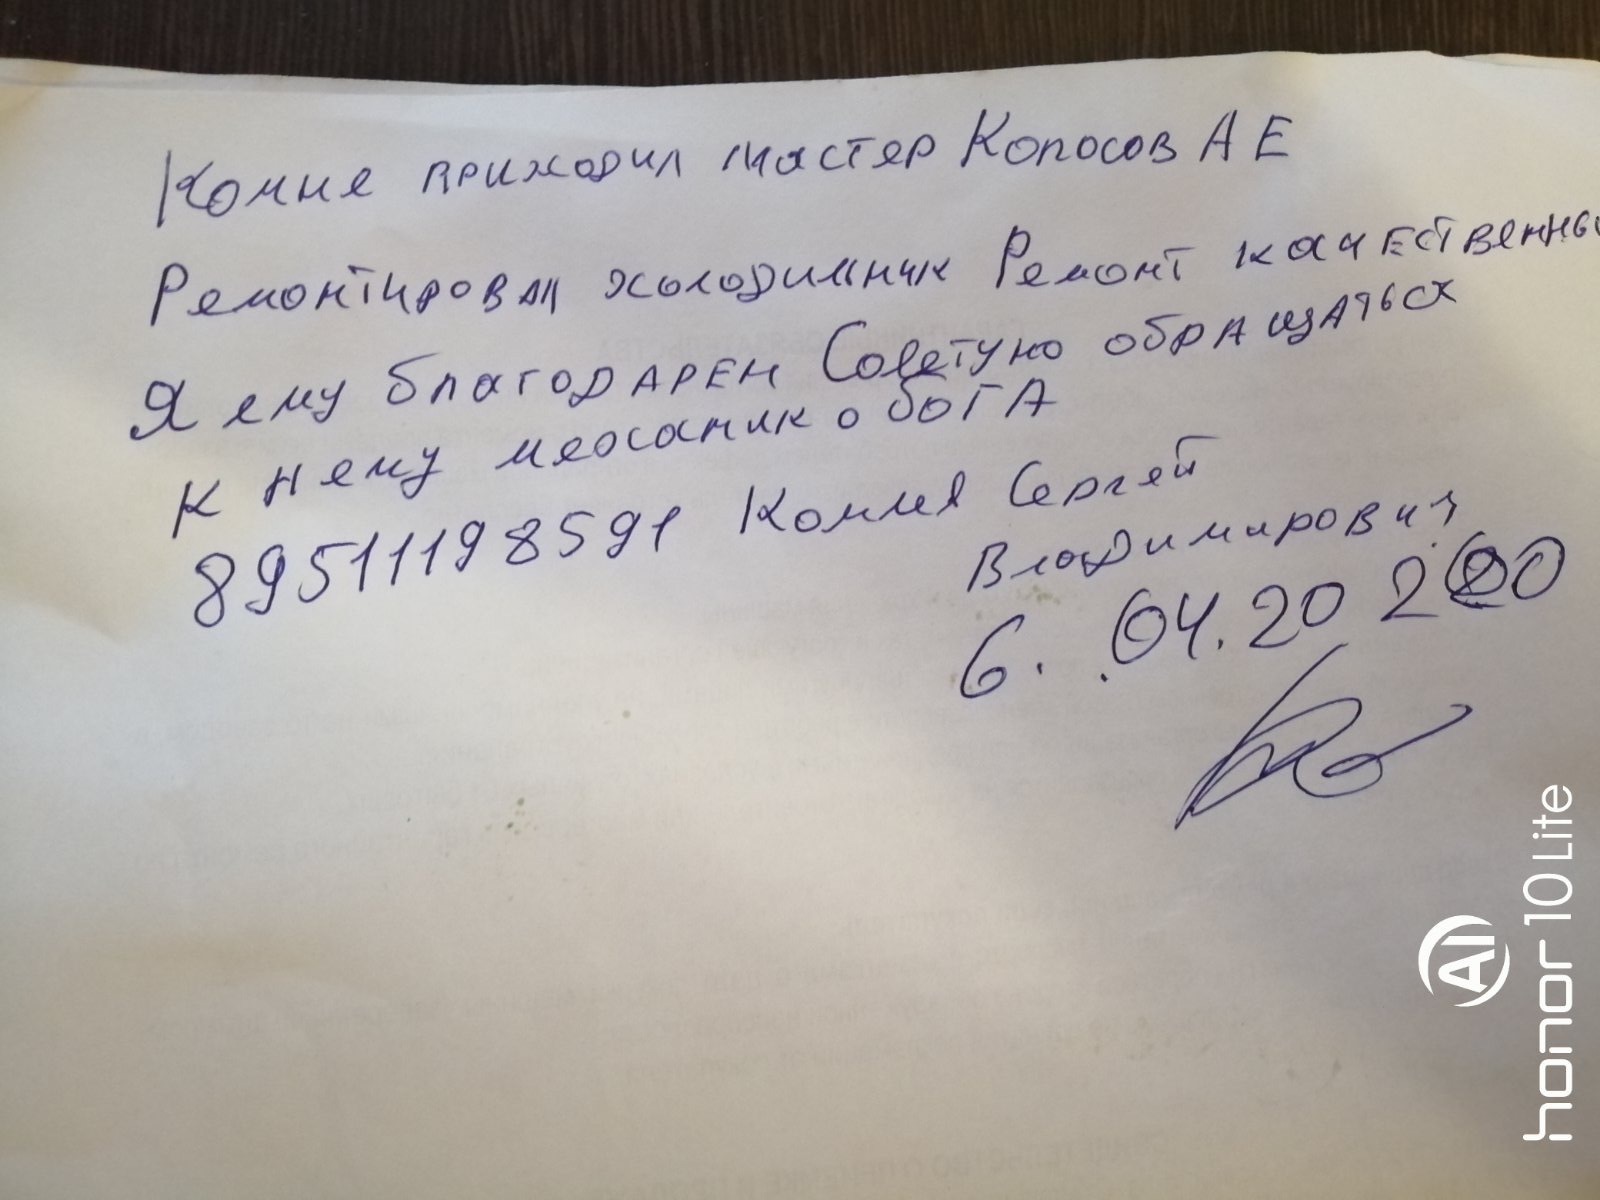 Комне приходил мастер Колосов А Е
Ремонтировал холодильник Ремонт качественны
Я ему благодарен Советую обращаться
к нему механик обога
89511198591 Сергей
Владимирович
6. .04.20 2020
AI honor 10 Lite